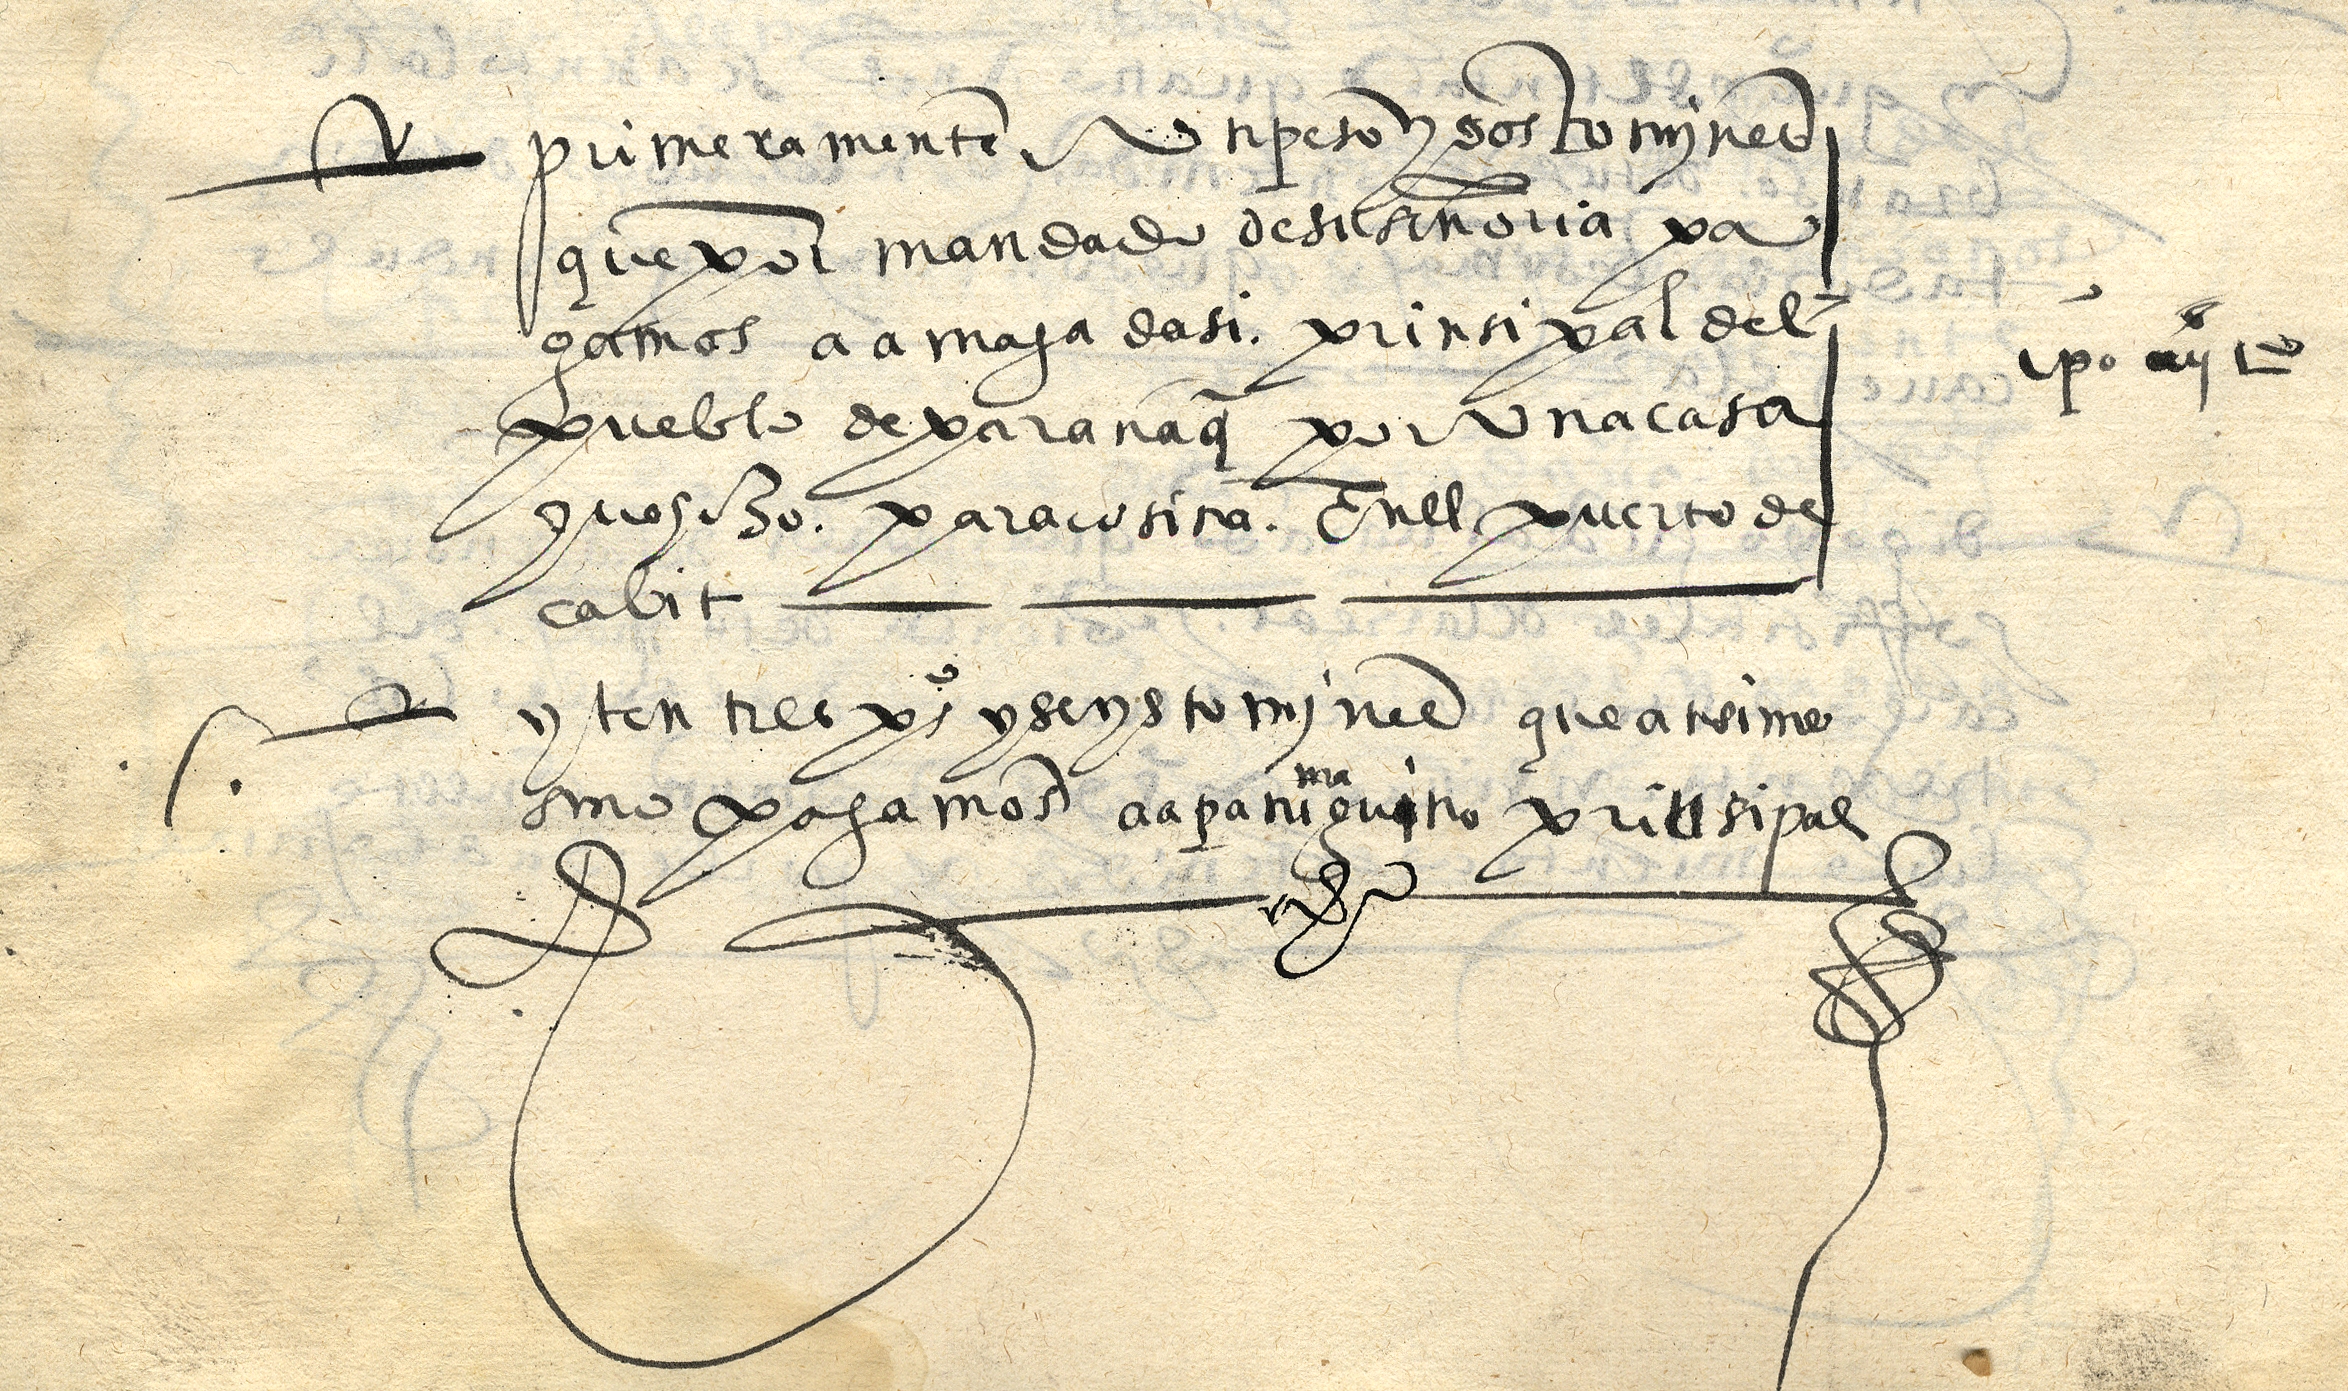 primeramente Un peso y dos tomines
que por mandado de su señoria pa
gamos a amaga dasi. prinsipal del
pueblo de paranaq por Una casa
que hizo. para cosina. En el puerto de
cabit
ipo ij to
yten tres ps y seys tomines que ansime
smo pagamos a apani guino prinsipal
ma